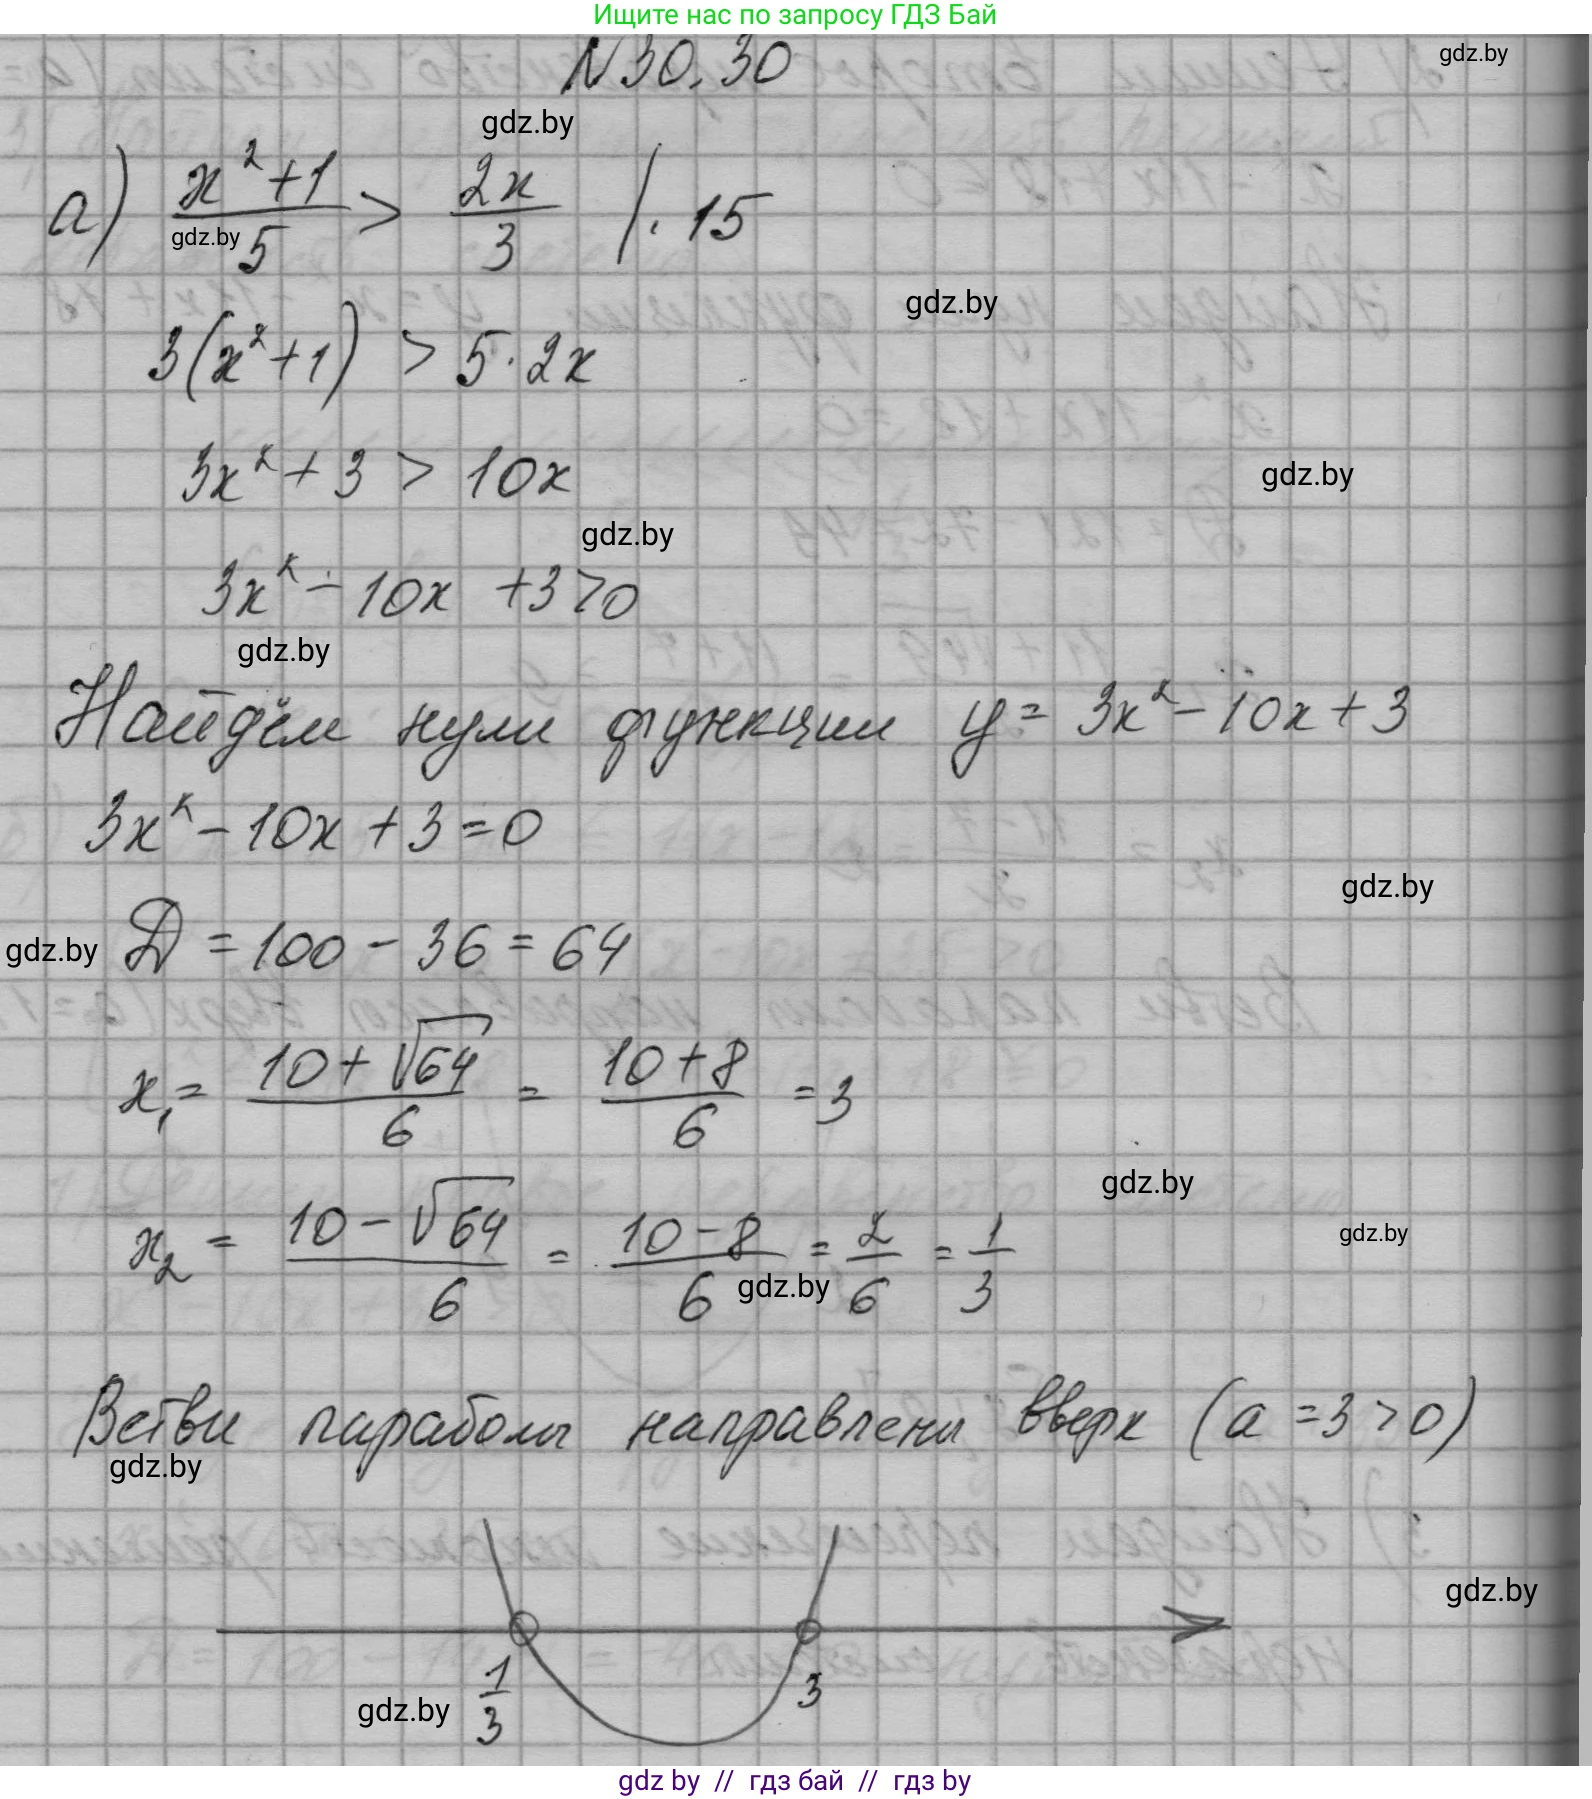 Ищите нас по запросу ГДЗ Бай
N30.30
gdz.by
gdz.by
а) (x²+1)/5 > 2x/3 /·15
gdz.by
gdz.by
3(x²+1) > 5·2x
3x²+3 > 10x
gdz.by
gdz.by
3x²-10x+3>0
gdz.by
Найдём нули функции y=3x²-10x+3
3x²-10x+3=0
gdz.by
gdz.by
D=100-36=64
x₁=(10+√64)/6=(10+8)/6=3
gdz.by
gdz.by
x₂=(10-√64)/6=(10-8)/6=2/6=1/3
gdz.by
Ветви параболы направлены вверх (a=3>0)
gdz.by
gdz.by
1/3 3
gdz.by
gdz by // гдз бай // гдз by